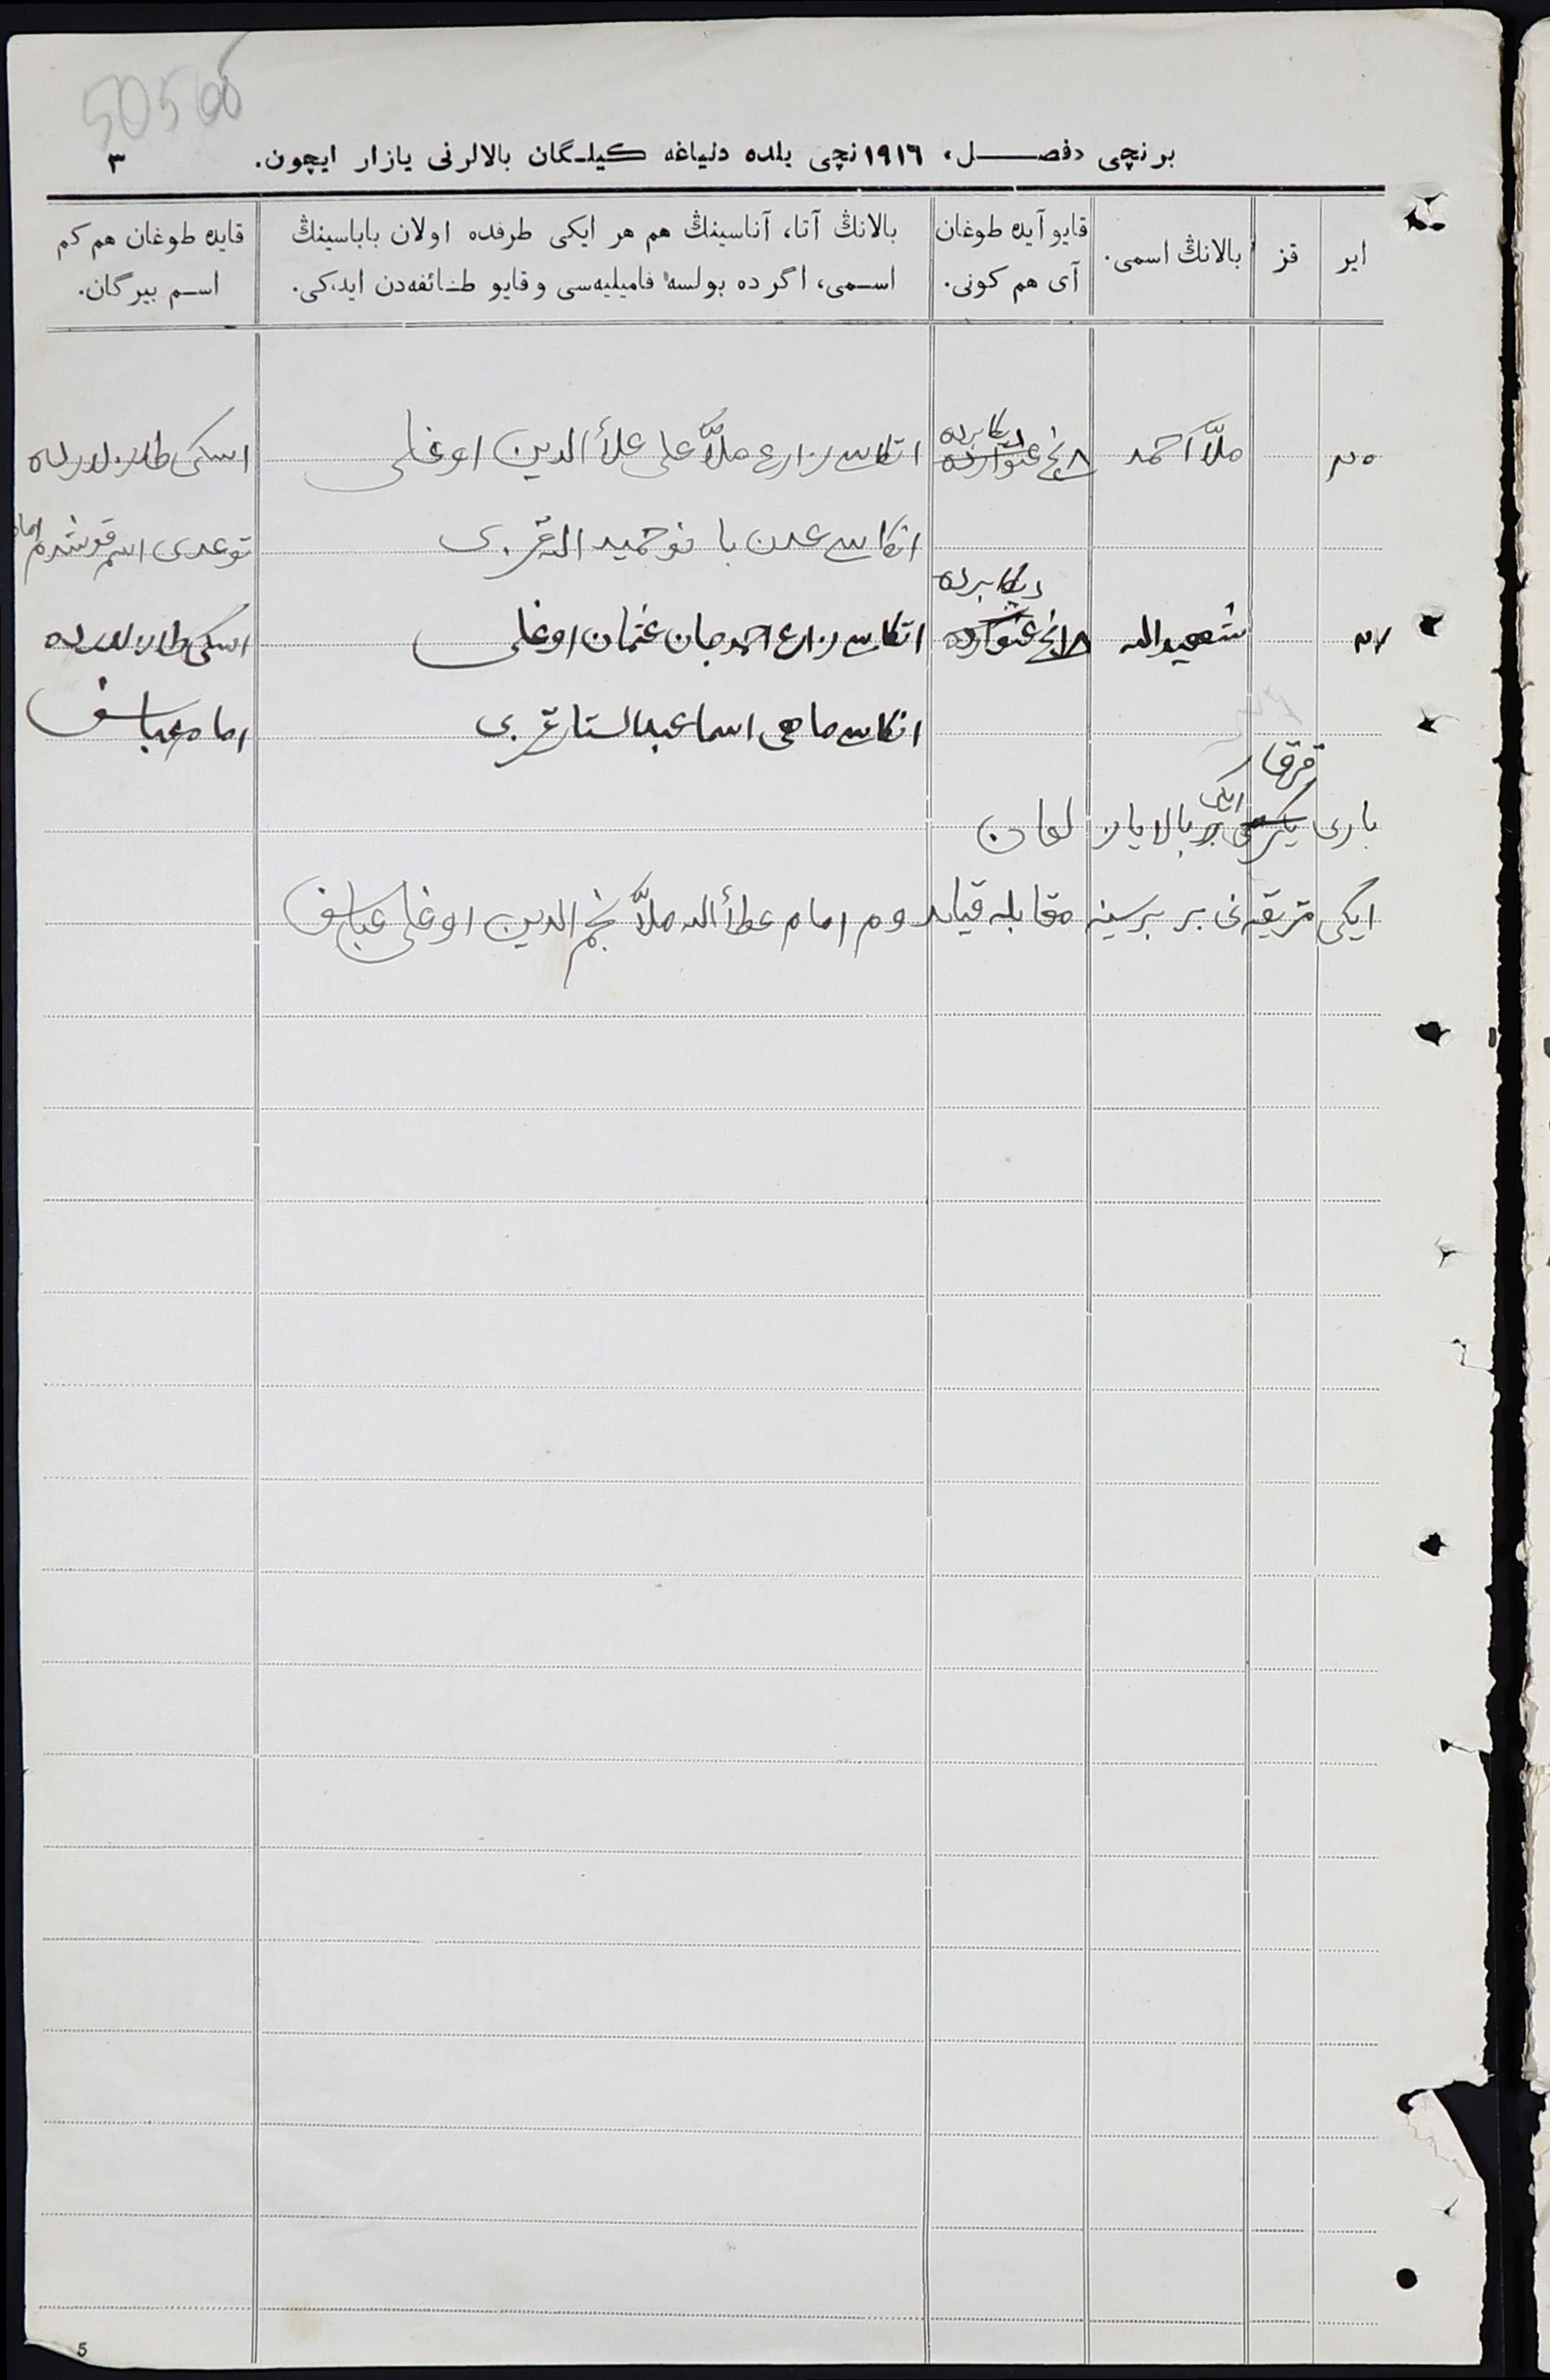 50566
برنچی «فصل» ۱۹۱٦ نچی یلده دنیاغه کیلگان بالالرنی یازار ایچون. ۳
ایر
قز
بالانڭ اسمی.
قایو آیده طوغان
آی هم کونی.
بالانڭ آتا، آناسینڭ هم هر ایکی طرفده اولان باباسینڭ
اسمی، اگرده بولسه فامیلیه‌سی و قایو طائفه‌دن ایدکی.
قایده طوغان هم کم
اسم بیرگان.
۲۰ ملاّ احمد
دیکابرده
۸ نچی غنوارده
اتکاسی زارع ملاّ علی علأالدین اوغلی
اسکی
انکاسی بانو حمیدالله قزی
توغدی اسم قوشدم امام
۲۱
دیکابرده
۱۸ نچی غنوارده
اتکاسی زارع احمدجان عثمان اوغلی
اسکی
انکاسی ماهی اسما عبدالستار قزی
امام عباسف
باری یکرمی بر ایکی بالا یازلغان
ایکی متریقه‌نی بر برسینه مقابله قیلدوم امام عطأالله ملاّ نجم الدین اوغلی عباسف
5